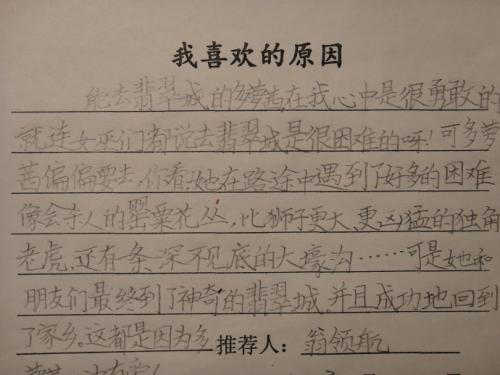 我喜欢的原因
能去翡翠城的多萝茜在我心中是很勇敢的
就连女巫们都说去翡翠城是很困难的呀！可多萝
茜偏偏要去，你看她在路途中遇到了好多的困难
像会杀人的罂粟花丛，比狮子更大、更凶猛的独角
老虎，还有一条深不见底的大壕沟……可是她和
朋友们最终到了神奇的翡翠城，并且成功地回到
了家乡。这都是因为多 推荐人：翁领航